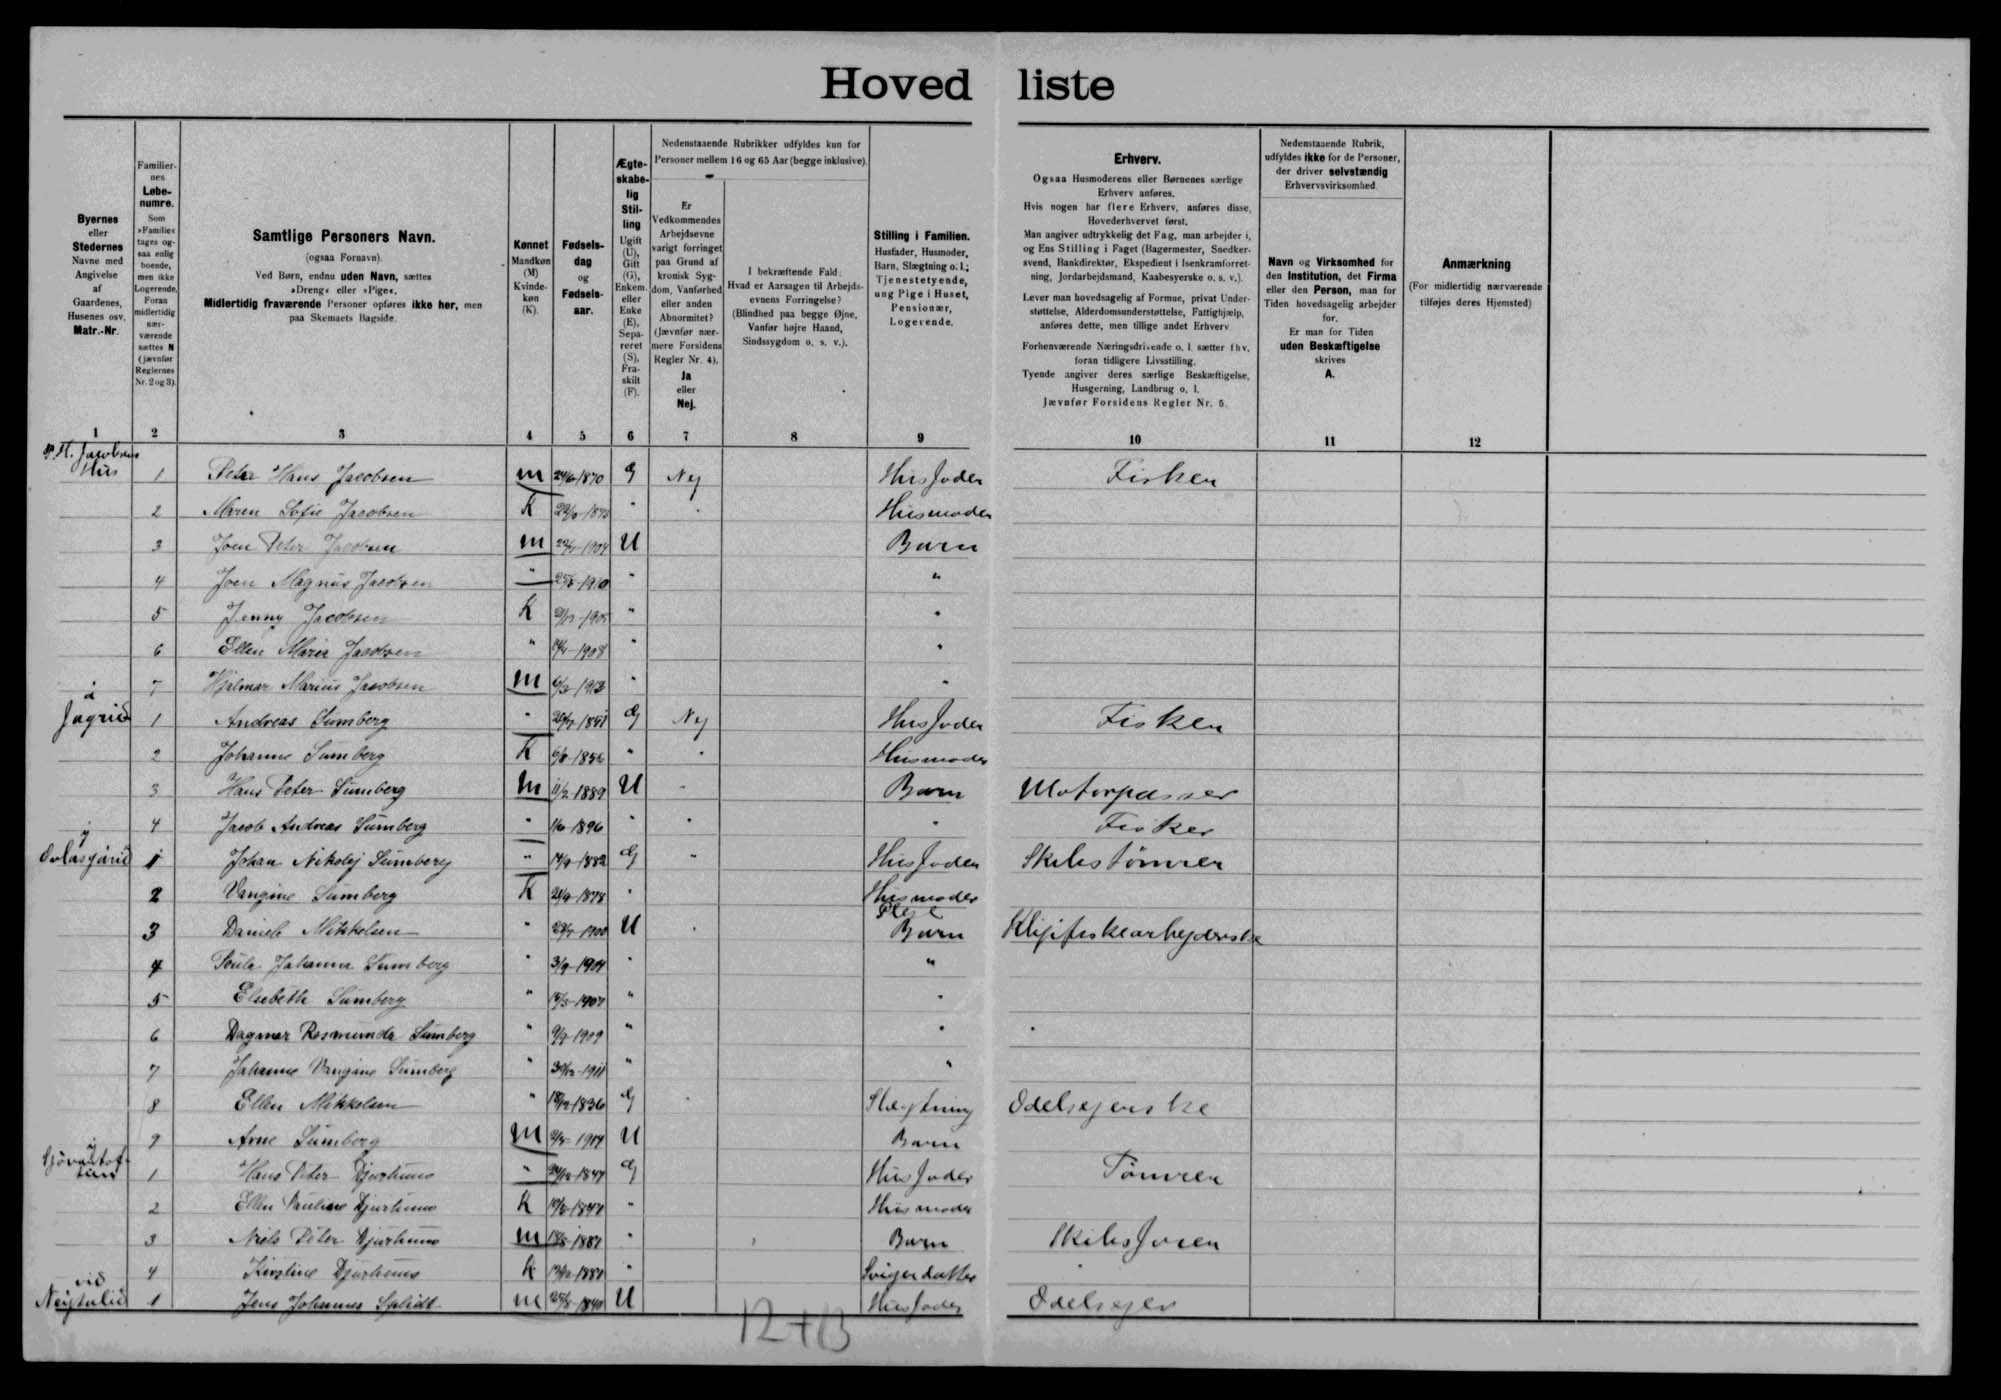 Hoved liste
Byernes
eller
Stedernes
Navne med
Angivelse
af
Gaardenes,
Husenes osv.
Matr.-Nr.
Familier-
nes
Løbe-
numre.
Som
»Familie«
tages og-
saa enlig
boende,
men ikke
Logerende.
Foran
midlertidig
nær-
værende
sættes N
(jævnfør
Reglernes
Nr. 2 og 3).
Samtlige Personers Navn.
(ogsaa Fornavn).
Ved Børn, endnu uden Navn, sættes
»Dreng« eller »Pige«.
Midlertidig fraværende Personer opføres ikke her, men
paa Skemaets Bagside.
Kønnet
Mandkøn
(M)
Kvinde-
køn
(K).
Fødsels-
dag
og
Fødsels-
aar.
Ægte-
skabe-
lig
Stil-
ling
Ugift
(U),
Gift
(G),
Enkem.
eller
Enke
(E),
Sepa-
reret
(S),
Fra-
skilt
(F).
Nedenstaaende Rubrikker udfyldes kun for
Personer mellem 16 og 65 Aar (begge inklusive).
Er
Vedkommendes
Arbejdsevne
varigt forringet
paa Grund af
kronisk Syg-
dom, Vanførhed
eller anden
Abnormitet?
(Jævnfør nær-
mere Forsidens
Regler Nr. 4).
Ja
eller
Nej.
I bekræftende Fald:
Hvad er Aarsagen til Arbejds-
evnens Forringelse?
(Blindhed paa begge Øjne,
Vanfør højre Haand,
Sindssygdom o. s. v.).
Stilling i Familien.
Husfader, Husmoder,
Barn, Slægtning o. l.;
Tjenestetyende,
ung Pige i Huset,
Pensionær,
Logerende.
Erhverv.
Ogsaa Husmoderens eller Børnenes særlige
Erhverv anføres.
Hvis nogen har flere Erhverv, anføres disse,
Hovederhvervet først.
Man angiver udtrykkelig det Fag, man arbejder i,
og Ens Stilling i Faget (Bagermester, Snedker-
svend, Bankdirektør, Ekspedient i Isenkramforret-
ning, Jordarbejdsmand, Kaabesyerske o. s. v.).
Lever man hovedsagelig af Formue, privat Under-
støttelse, Alderdomsunderstøttelse, Fattighjælp,
anføres dette, men tillige andet Erhverv.
Forhenværende Næringsdrivende o. l. sætter fhv.
foran tidligere Livsstilling.
Tyende angiver deres særlige Beskæftigelse,
Husgerning, Landbrug o. l.
Jævnfør Forsidens Regler Nr. 5.
Nedenstaaende Rubrik,
udfyldes ikke for de Personer,
der driver selvstændig
Erhvervsvirksomhed.
Navn og Virksomhed for
den Institution, det Firma
eller den Person, man for
Tiden hovedsagelig arbejder
for.
Er man for Tiden
uden Beskæftigelse
skrives
A.
Anmærkning
(For midlertidig nærværende
tilføjes deres Hjemsted)
1 2 3 4 5 6 7 8 9 10 11 12
P. H. Jacobsens
Hus 1 Peter Hans Jacobsen m 24/6-1870 G Nej Husfader Fisker
2 Maren Sofie Jacobsen K " " Husmoder
3 Joen Peter Jacobsen m 1904 U Barn
4 Joen Magnus Jacobsen " 1910 " "
5 Jenny Jacobsen K 1905 " "
6 Ellen Maria Jacobsen " 1908 " "
7 Hjalmar Marius Jacobsen m 1913 " "
á
1 Andreas Sumberg " G Nej Husfader Fisker
2 Johanne Sumberg K " " Husmoder
3 Hans Peter Sumberg m 11/2-1889 U " Barn Motorpasser
4 Jacob Andreas Sumberg " 1896 " " " Fisker
í
1 Johan Nikolej Sumberg " 1882 G " Husfader Skibstømrer
2 Vangine Sumberg K 1878 " Husmoder
Pleje
3 Mikkelsen " 1900 U " Barn Klipfiskearbejderske
4 Johanna Sumberg " 3/9-1904 " "
5 Elsebeth Sumberg " 1907 " "
6 Dagmar Rosmunda Sumberg " 1909 " "
7 Johanne Vangine Sumberg " 1911 " "
8 Ellen Mikkelsen " 1836 G " Slægtning Odelsejerske
9 Arne Sumberg m 1914 U Barn
1 Hans Peter Djurhuus " 1847 G Husfader Tømrer
2 Ellen Pauline Djurhuus K " Husmoder
3 Niels Peter Djurhuus m " Barn Skibsfører
4 Kirstine Djurhuus K " Svigerdatter
við
1 Jens Johannes Splidt m 1840 U Husfader Odelsejer
12+13